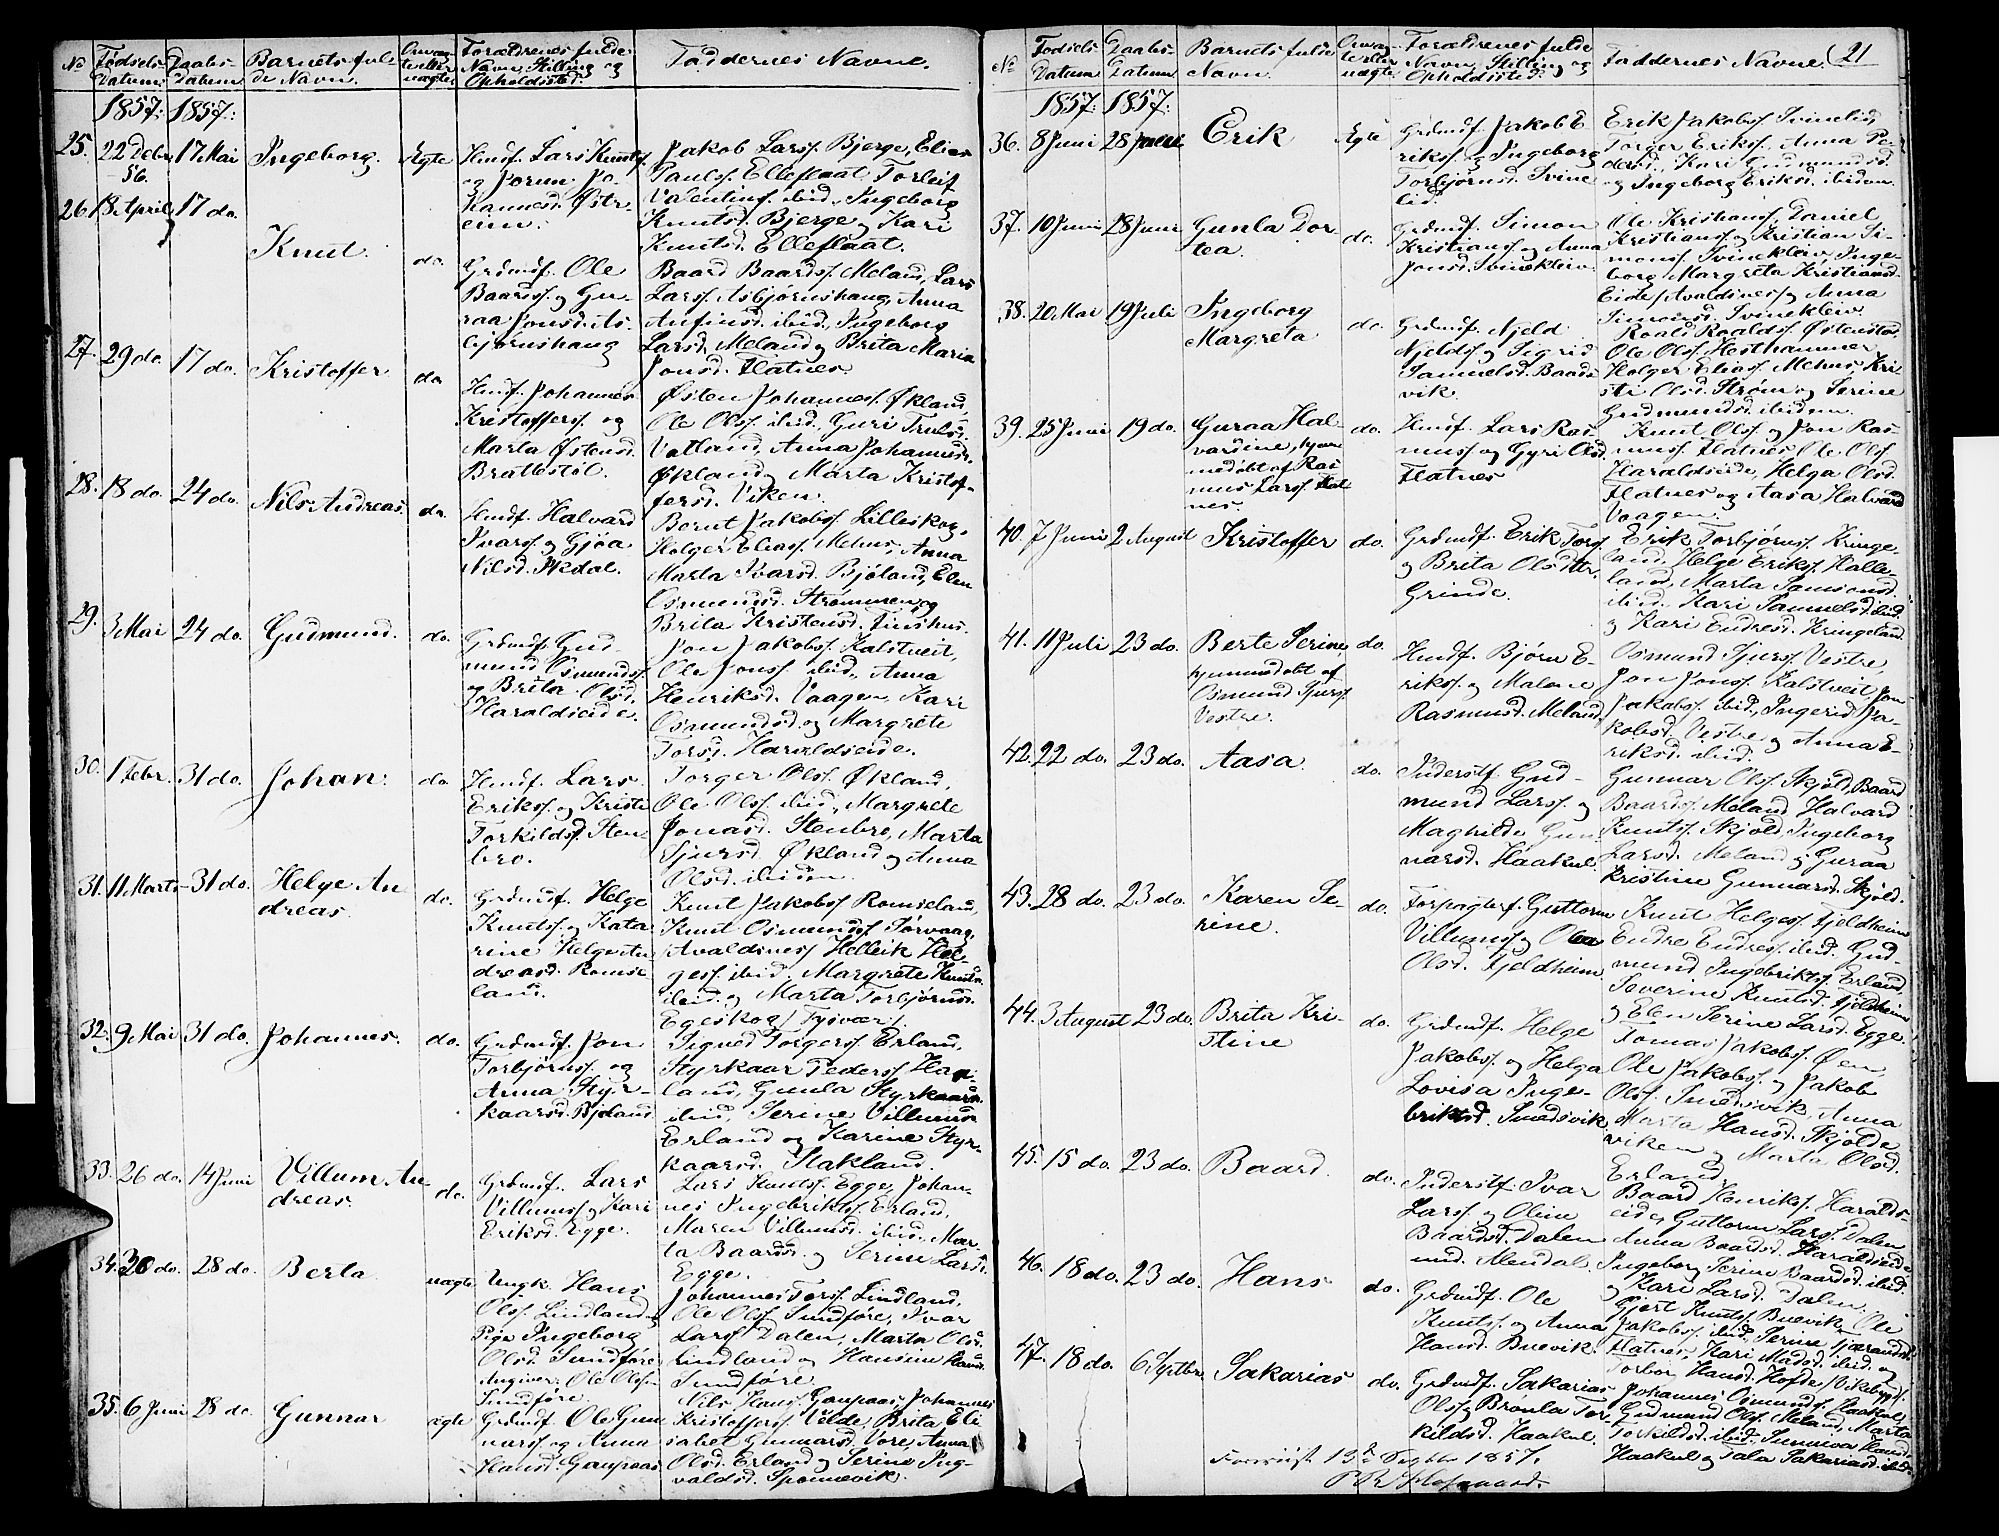 No Fødsels Datum. Daabs Datum Barnets fulde Navn. Om ægte eller uægte Forældrenes fulde Navn, Stilling og Opholdssted. Faddernes Navne.
1857: 1857:
25. 22 Decbr 56. 17 Mai Ingeborg. Ægte Husf. Lars Knuts. og Jorun Johannesd. Østrem.
Jakob Larss. Bjerge, Elias
Pauls. Elleflaat, Torleif
Valentins. ibid, Ingeborg
Knutsd. Bjerge og Kari
Knutsd. Elleflaat.
26. 18 April 17 do. Knut. do. Grdmdf. Ole
Baards. og Guraa Jonsd. Asbjørnshaug
Baard Baards. Meland, Lars
Larss. Asbjørnshaug, Anna
Anfinsd. ibid., Ingeborg
Larsd. Meland og Brita Maria
Jonsd. Flatnes
27. 29 do. 17 do. Kristoffer do. Husf. Johannes
Kristoffers. og
Marta Østensd.
Brattestøl.
Østen Johanness. Økland,
Ole Ols. ibid., Guri Trulsd.
Vatland, Anna Johannesd.
Økland og Marta Kristoffersd. Viken.
28. 18 do. 24 do. Nils Andreas. do. Husf. Halvard
Ivars. og Gjøa
Nilsd. Skdal.
Bernt Jakobs. Lilleskog,
Holger Elias. Mehus, Anna
Marta Ivarsd. Bjøland, Elen
Osmundsd. Strømmen og
Brita Kristensd. Tinshus.
29. 3 Mai 24 do. Gudmund. do. Grdmdf. Gudmund Osmunds.
og Brita Olsd.
Haraldseide.
Jon Jakobs. Kalstveit,
Ole Jons. ibid., Anna
Henriksd. Vaagen, Kari
Osmundsd. og Margrete
Torsd. Haraldseide.
30. 1 Febr. 31 do. Johan. do. Husf. Lars
Eriks. og Kristi
Torkildsd. Stenbro.
Torger Ols. Økland,
Ole Ols. ibid, Margrete
Jonasd. Stenbro, Marta
Sjursd. Økland og Anna
Olsd. ibidem.
31. 11 Marts 31 do. Helge Andreas. do. Grdmdf. Helge
Knuts. og Katarine Helge Andreasd. Romseland.
Knut Jakobs. Romseland,
Knut Osmunds. Førvaag,
Avaldsnes, Helleik Helgess. ibid. Margrete Knutsd.
ibid. og Marta Torbjørnsd.
Egeskog /Tysvær/.
32. 9 Mai 31 do. Johannes. do. Grdmdf. Jon
Torbjørns. og
Anna Styrkaarsd. Bjoland
Sigved Torgers. Erland,
Styrkaar Peders. Hauland, Gunla Styrkaarsd.
ibid, Serine Villumsd.
Erland og Karine Styrkaarsd. Stakland.
33. 26 do. 14 Juni Villum Andreas. do. Grdmdf. Lars
Villums. og Kari
Eriksd. Egge.
Lars Knuts. Egge, Johannes Ingebrikts. Erland,
Maren Villumsd. ibid., Marta Baardsd. og Serine Larsd.
Egge.
34. 30 do. 28 do. Berta uægte Ungk. Hans
Ols. Lindland og
Pige Ingeborg
Olsd. Sundføre
Angiver Ole Olsen
Sundføre.
Johannes Torss. Lindland,
Ole Ols. Sundføre, Ivar
Larss. Dalen, Marta Olsd.
Lindland og Hansine Hansd.
Sundføre
35. 6 Juni 28 do. Gunnar ægte Grdmdf. Ole Gunnars. og Anna
Hansd. Gaupaas
Nils Hans. Gaupaas, Johannes
Kristoffers. Velde, Brita Elisabet Gunnarsd. Vore, Anna
Olsd. Erland og Serine Ingvaldsd. Sponnevik.
No Fødsels Datum Daabs Datum. Barnets fulde Navn. Om ægte eller uægte Forældrenes fulde Navn, Stilling og Opholdssted. Faddernes Navne. 21
1857: 1857:
36. 8 Juni 28 Juni Erik Ægte Grdmdf. Jakob Eriks. og Ingeborg
Torbjørnsd. Svinelid.
Erik Jakobs. Svinelid,
Torger Eriks., Anna Pedersd., Kari Gudmundsd.
og Ingeborg Eriksd. ibidem.
37. 10 Juni 28 Juni Gunla Dortea. do. Grdmdf. Simon
Kristians. og Anna
Jonsd. Svinekleiv.
Ole Kristians., Daniel
Kristians. og Kristian Simons. Svinekleiv, Ingeborg Margreta Kristiansd.
Eide /Avaldsnes/ og Anna
Simonsd. Svinekleiv
38. 20 Mai 19 Juli Ingeborg
Margreta do. Grdmdf. Njeld
Njelds. og Sigrid
Samuelsd. Baadsvik.
Roald Roalds. Østenstad,
Ole Ols. Hesthammer
Holger Elias. Mehus, Kristi Olsd. Strøm og Serine
Gudmundsd. ibidem.
39. 25 Juni 19 do. Guraa Halvardine, hjemmedøbt af Rasmus Larss. Flatnes. do. Husf. Lars Rasmus. og Gyri Olsd.
Flatnes
Knut Ols. og Jon Rasmus. Flatnes Ole Ols.
Haraldseide, Helga Olsd.
Flatnes og Aasa Halvardsd.
Vaagen.
40. 7 Juni 2 August Kristoffer do. Grdmdf. Erik Tors.
og Brita Olsdtr.
Grinde.
Erik Torbjørns. Kringeland, Helge Eriks. Halleland, Marta Samsonsd.
ibid., Kari Samuelsd. ibid.
og Kari Endresd. Kringeland
41. 11 Juli 23 do. Berte Serine,
hjemmedøbt af
Osmund Sjurs.
Vestre. do. Husf. Bjørn Eriks. og Malene
Rasmusd. Meland
Osmund Sjurs. Vestre,
Jon Jons. Kalstveit, Jon
Jakobs. ibid, Ingerid Jakobsd. Vestre og Anna Eriksd. ibid.
42. 22 do. 23 do. Aasa do. Inderstf. Gudmund Larss. og
Maghilde Gunnarsd. Haakul.
Gunnar Ols. Skjold, Baard
Baards. Meland, Halvard
Knuts. Skjold, Ingeborg
Larsd. Meland og Guraa
Kristine Gunnarsd. Skjold.
43. 28 do. 23 do. Karen Serine. do. Forpagterf. Guttorm
Villums. og Olena
Olsd. Fjeldheim
Knut Helges. Fjeldheim
Endre Endres. ibid. Gudmund Ingebrikts. Erland
Severine Knutsd. Fjeldheim
og Elen Serine Larsd. Egge.
44. 3 August 23 do. Brita Kristine do. Grdmdf. Helge
Jakobs. og Helga
Lovisa Ingebriktsd. Smedsvik
Tomas Jakobs. Øen,
Ole Jakobs. og Jakob
Ols. Smedsvik, Anna
Marta Hansd. Skjoldeviken og Marta Olsd.
Erland.
45. 15 do. 23 do. Baard. do. Inderstf. Ivar
Larss. og Oline
Baardsd. Dalen
und. Alendal.
Baard Henriks. Haraldseide, Guttorm Larss. Dalen
Anna Baardsd. Haraldseide
Ingeborg Serine Baardsd. ibid.
og Kari Larsd. Dalen.
46. 18 do. 23 do. Hans do. Grdmdf. Ole
Knuts. og Anna
Hansd. Buevik.
Gjert Knuts. Buevik, Ole
Jakobs. ibid, Serine Tjærandsd.
Flatnes, Kari Madsd. ibid. og
Torbor Hansd. Hofde /Vikebygd/.
47. 18 do. 6 Septbr. Sakarias do. Grdmdf. Sakarias
Ols. og Bronla Torkildsd. Haakul.
Johannes Osmunds. Haakul
Gudmund Ols. Meland, Marta
Torkildsd. ibid. Sunniva Hansd.
Haakul og Tala Sakariasd. ibid.
Foreviist 13de Septbr 1857.